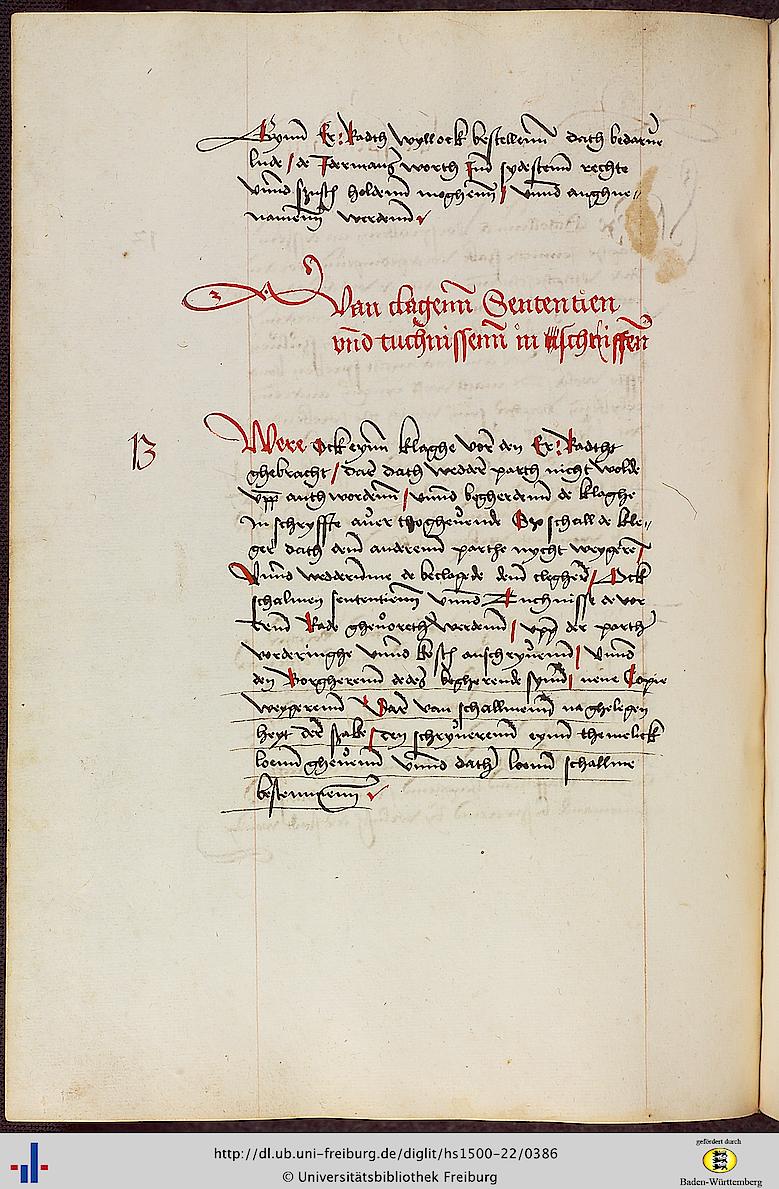 Eynn Er: Radth wyll ock bestellenn dath bedarue
lude / de Idermans worth Inn sydestenn rechte
vnnd synst holdenn moghenn / vnnd anghne-
namenn werdenn
Van clagenn Sententien
vnd tuchnissenn in schriffen
13
Were Ock eynn klaghe vor den Er: Radtht
ghebracht / dar dath wedder parth nicht wolde
vpp anth wordenn / vnnd begherdenn de klaghe
In schryffte auer thogheuende Szo schall de kle-
ger dath dem anderenn parthe nycht weygeren /
Vnnd wedderumme de beclagede dem clegher / Ock
schalmen sententienn vnnd Tuchnisse de vor
dem Rade ghevoreth werdenn / vpp der parth
vorderinghe vnnd kosth anschryuenn / Vnnd
den Borgherenn dedes begherende synd / nene Copie
weygerenn Dar van schallmenn na ghelegen
heyt der sake / den schryuerenn eynn themelick
loenn gheuenn vnnd dath loenn schallme
bestemmenn
http://dl.ub.uni-freiburg.de/diglit/hs1500-22/0386
© Universitätsbibliothek Freiburg
gefördert durch
Baden-Württemberg